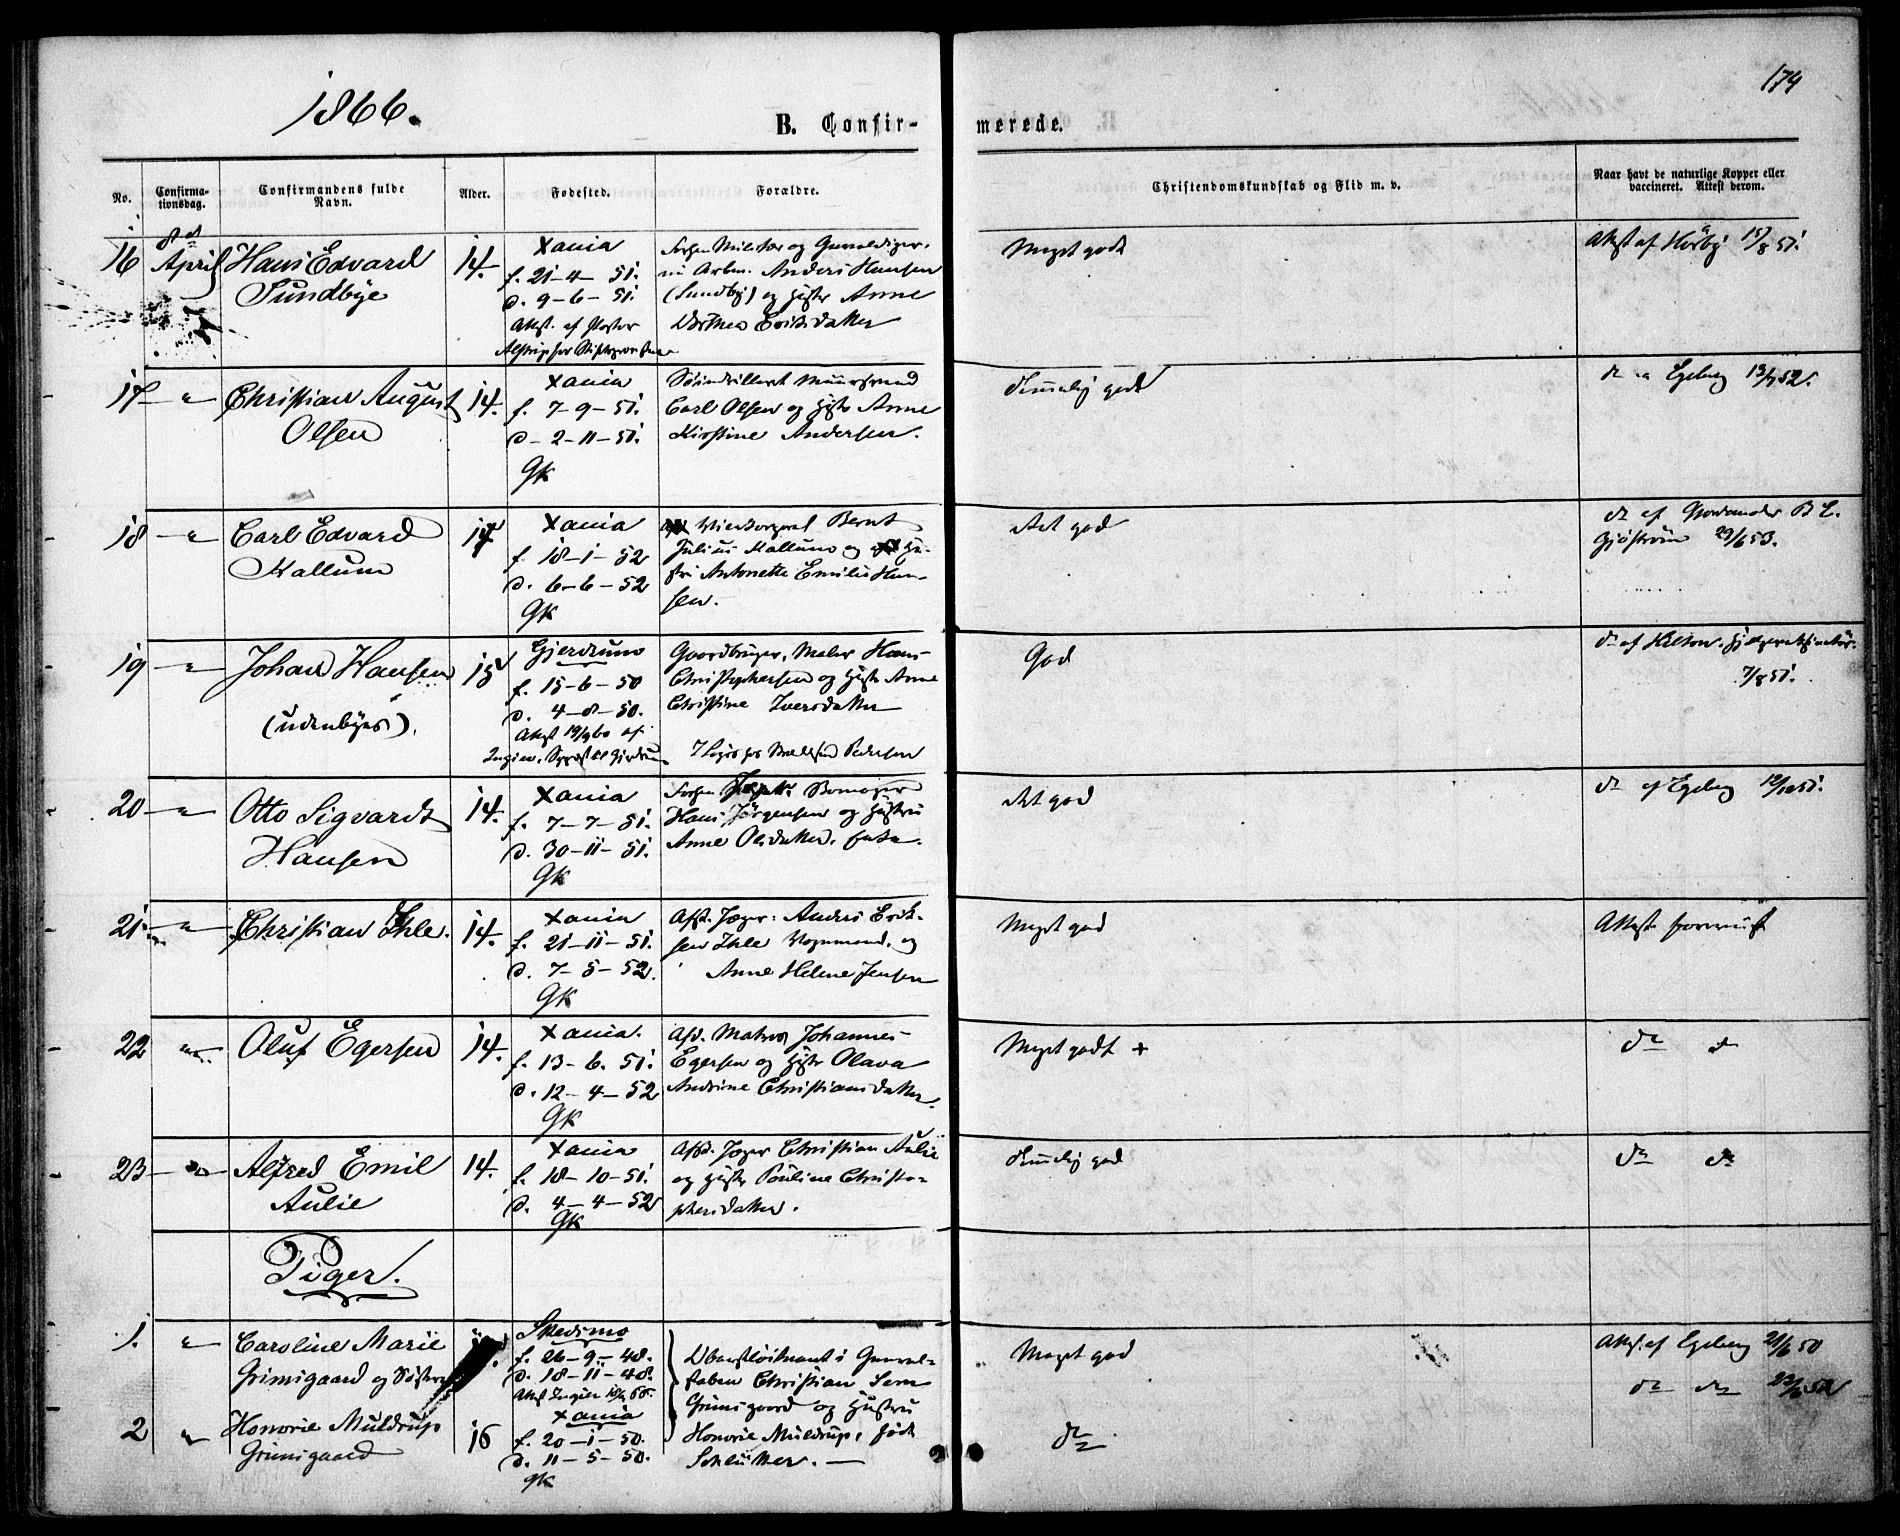 1866.
174
B. Confir-
merede.
No.
Confirma-
tionsdag.
Confirmandens fulde
Navn.
Alder.
Fødested.
Forældre.
Christendomskundskab og Flid m. v.
Naar havt de naturlige Kopper eller
vaccineret. Attest derom.
16 8de April Hans Edvard Sundbye 14.
Xania
f. 21-4-51.
d. 9-6-51.
Attest. af Pastor
Anders Hansen
(Sundby) og Hustr Anne
Dorthea Eriksdatter
Meget godt
Attest af Hörbÿ 15/8 51.
17 " Christian August Olsen 14.
Xania
f. 7-9-51.
d. 2-11-51.
GK
Carl Olsen og Hustr Anne
Kirstine Andersen.
Temmelig godt
do " Egeberg 13/7 52.
18 " Carl Edvard Kallum 14
Xania
f. 18-1-52
d. 6-6-52
GK
Bernt
Julius Kallum og Hu-
stru Antonette Emilie Han-
sen.
Ret god
do af
29/6 53.
19 " Johan Hansen (udenbyes). 15
Gjerdrum
f. 15-6-50
d. 4-8-50.
Attest 19/9 60 af
Gaardbruger, Maler Hans
Christophersen og Hustr Anne
Christine Iversdatter
God
do af
7/8 51.
20 " Otto Sigvardt Hansen 14.
Xania
f. 7-7-51.
d. 30-11-51.
GK
Hans Jörgensen og Hustru
Anne Olsdatter.
Ret god
do af Egeberg 12/12 51.
21 " Christian Ihle. 14.
Xania
f. 21-11-51.
d. 7-5-52.
GK
Afsk. Jæger: Anders Erik-
sen Ihle Vognmand. og
Anne Helene Jensen
Meget god
Attest foreviist
22 " Oluf Egersen 14.
Xania.
f. 13-6-51.
d. 12-4-52
GK
Afd. Matros Johannes
Egersen og Hustr Olava
Andrine Christiansdatter.
Meget godt +
do do
23 " Alfred Emil Aulie 14.
Xania
f. 18-10-51.
d. 4-4-52
GK
Afsk. Jæger Christian Aulie
og Hustr Pouline Christo-
phersdatter.
Temmelig god
do do
Piger.
1. " Caroline Marie
Grimsgaard og Søsteren
Skedsmo
f. 26-9-48.
d. 18-11-48.
Oberstløitnant i General-
staben Christian Sem
Grimsgaard og Hustru
Honorie Muldrup, født
Schlütter.
Meget god
Attest. af Egeberg 21/6 50
do do
2 " Honorie Muldrup
Grimsgaard 16
Xania
f. 20-1-50.
d. 11-5-50.
GK
do